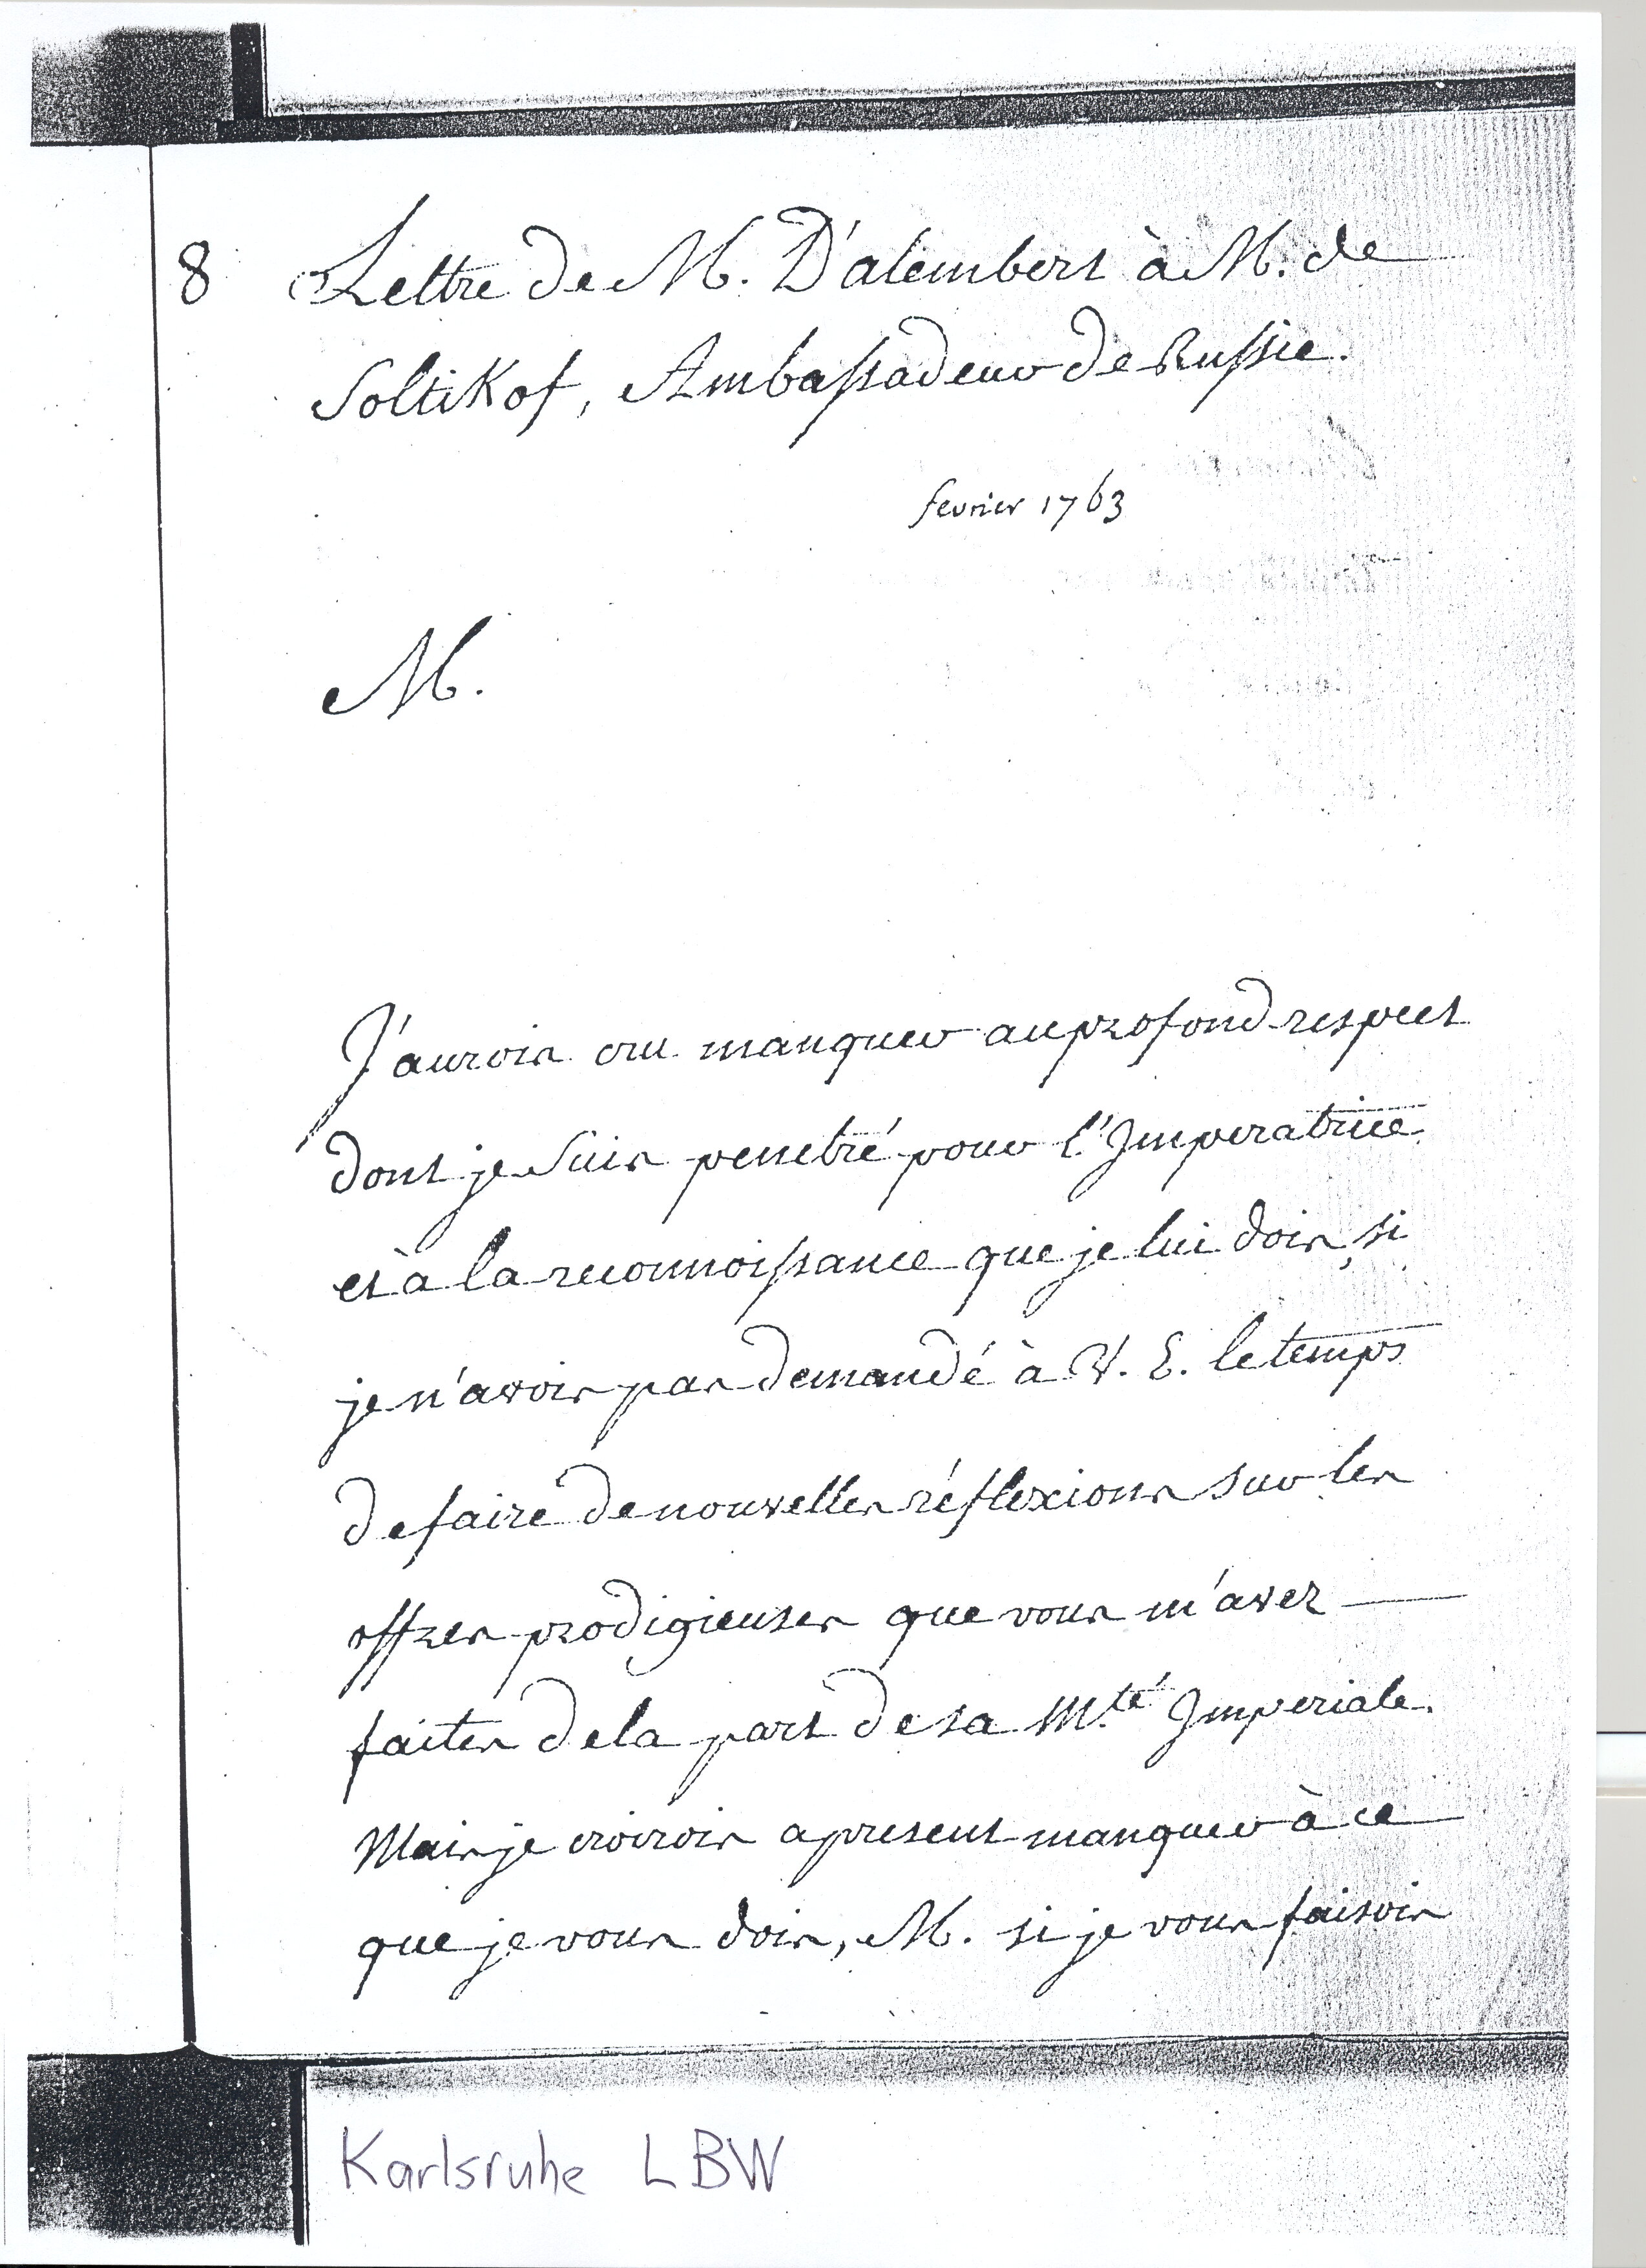 8 Lettre de M. D'alembert à M. de
Soltikof, Ambassadeur de Russie.
fevrier 1763
M.
J'aurois cru manquer au profond respect
dont je suis penetré pour l'Imperatrice
et à la reconnoissance que je lui dois, si
je n'avois pas demandé à V. E. le temps
de faire de nouvelles réflexions sur les
offres prodigieuses que vous m'avez
faites de la part de sa M.té Imperiale.
Mais je croirois apresent manquer à ce
que je vous dois, M. si je vous faisois
Karlsruhe LBW